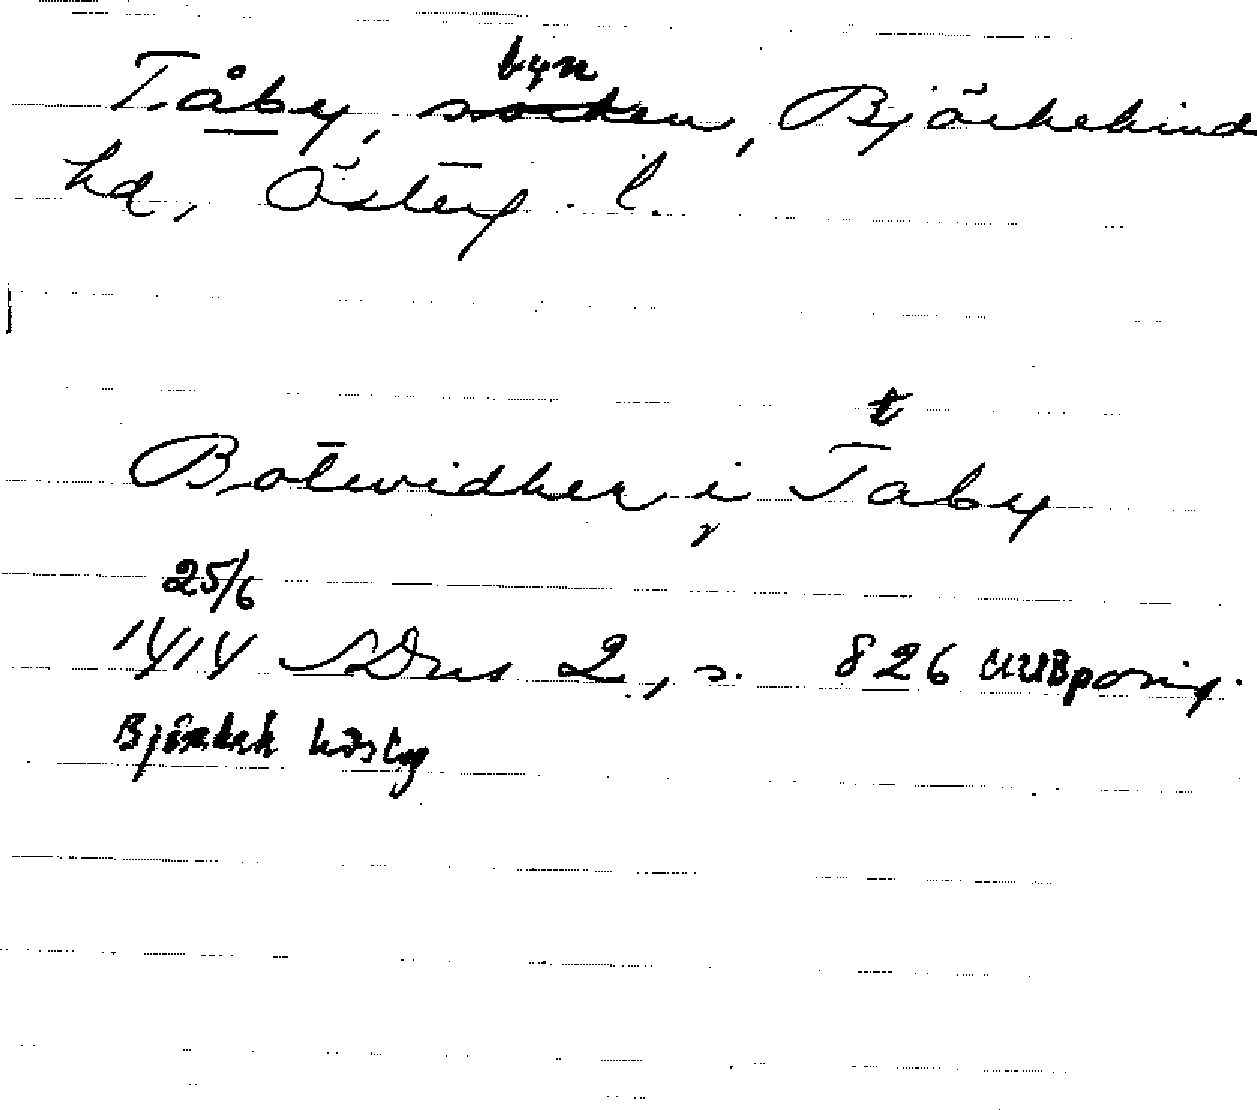 byn
Tåby, socken, Björkekind
hd, Österg. l.
t
Botwidher i Taby
25/6
1414 SDns 2, s. 826 UUB perg.
Björkek hd Östg